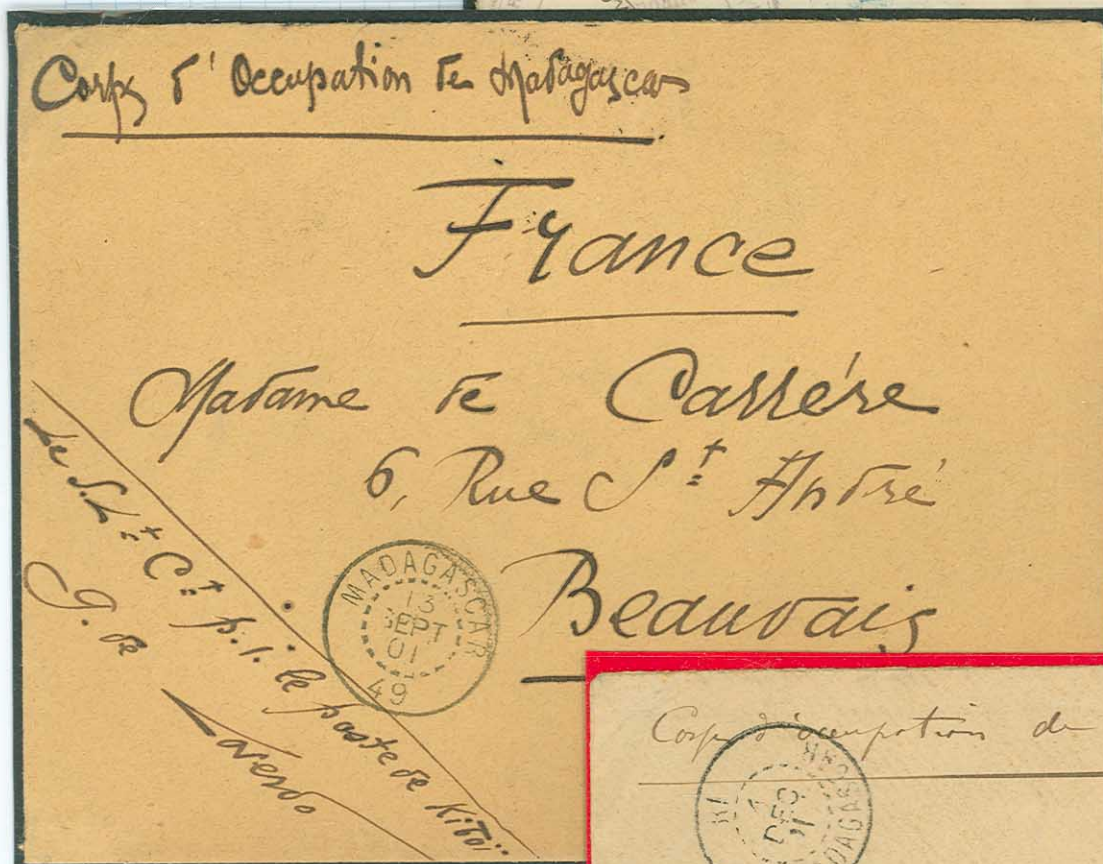 Corps d'Occupation de Madagascar
France
Madame de Carrère
6, Rue St André
Beauvais
Le S.Lt Ct p.i. le poste de Kitoï
G. de
MADAGASCAR
13
SEPT
01
49
Corps d'occupation de
DEC
MADAGASCAR